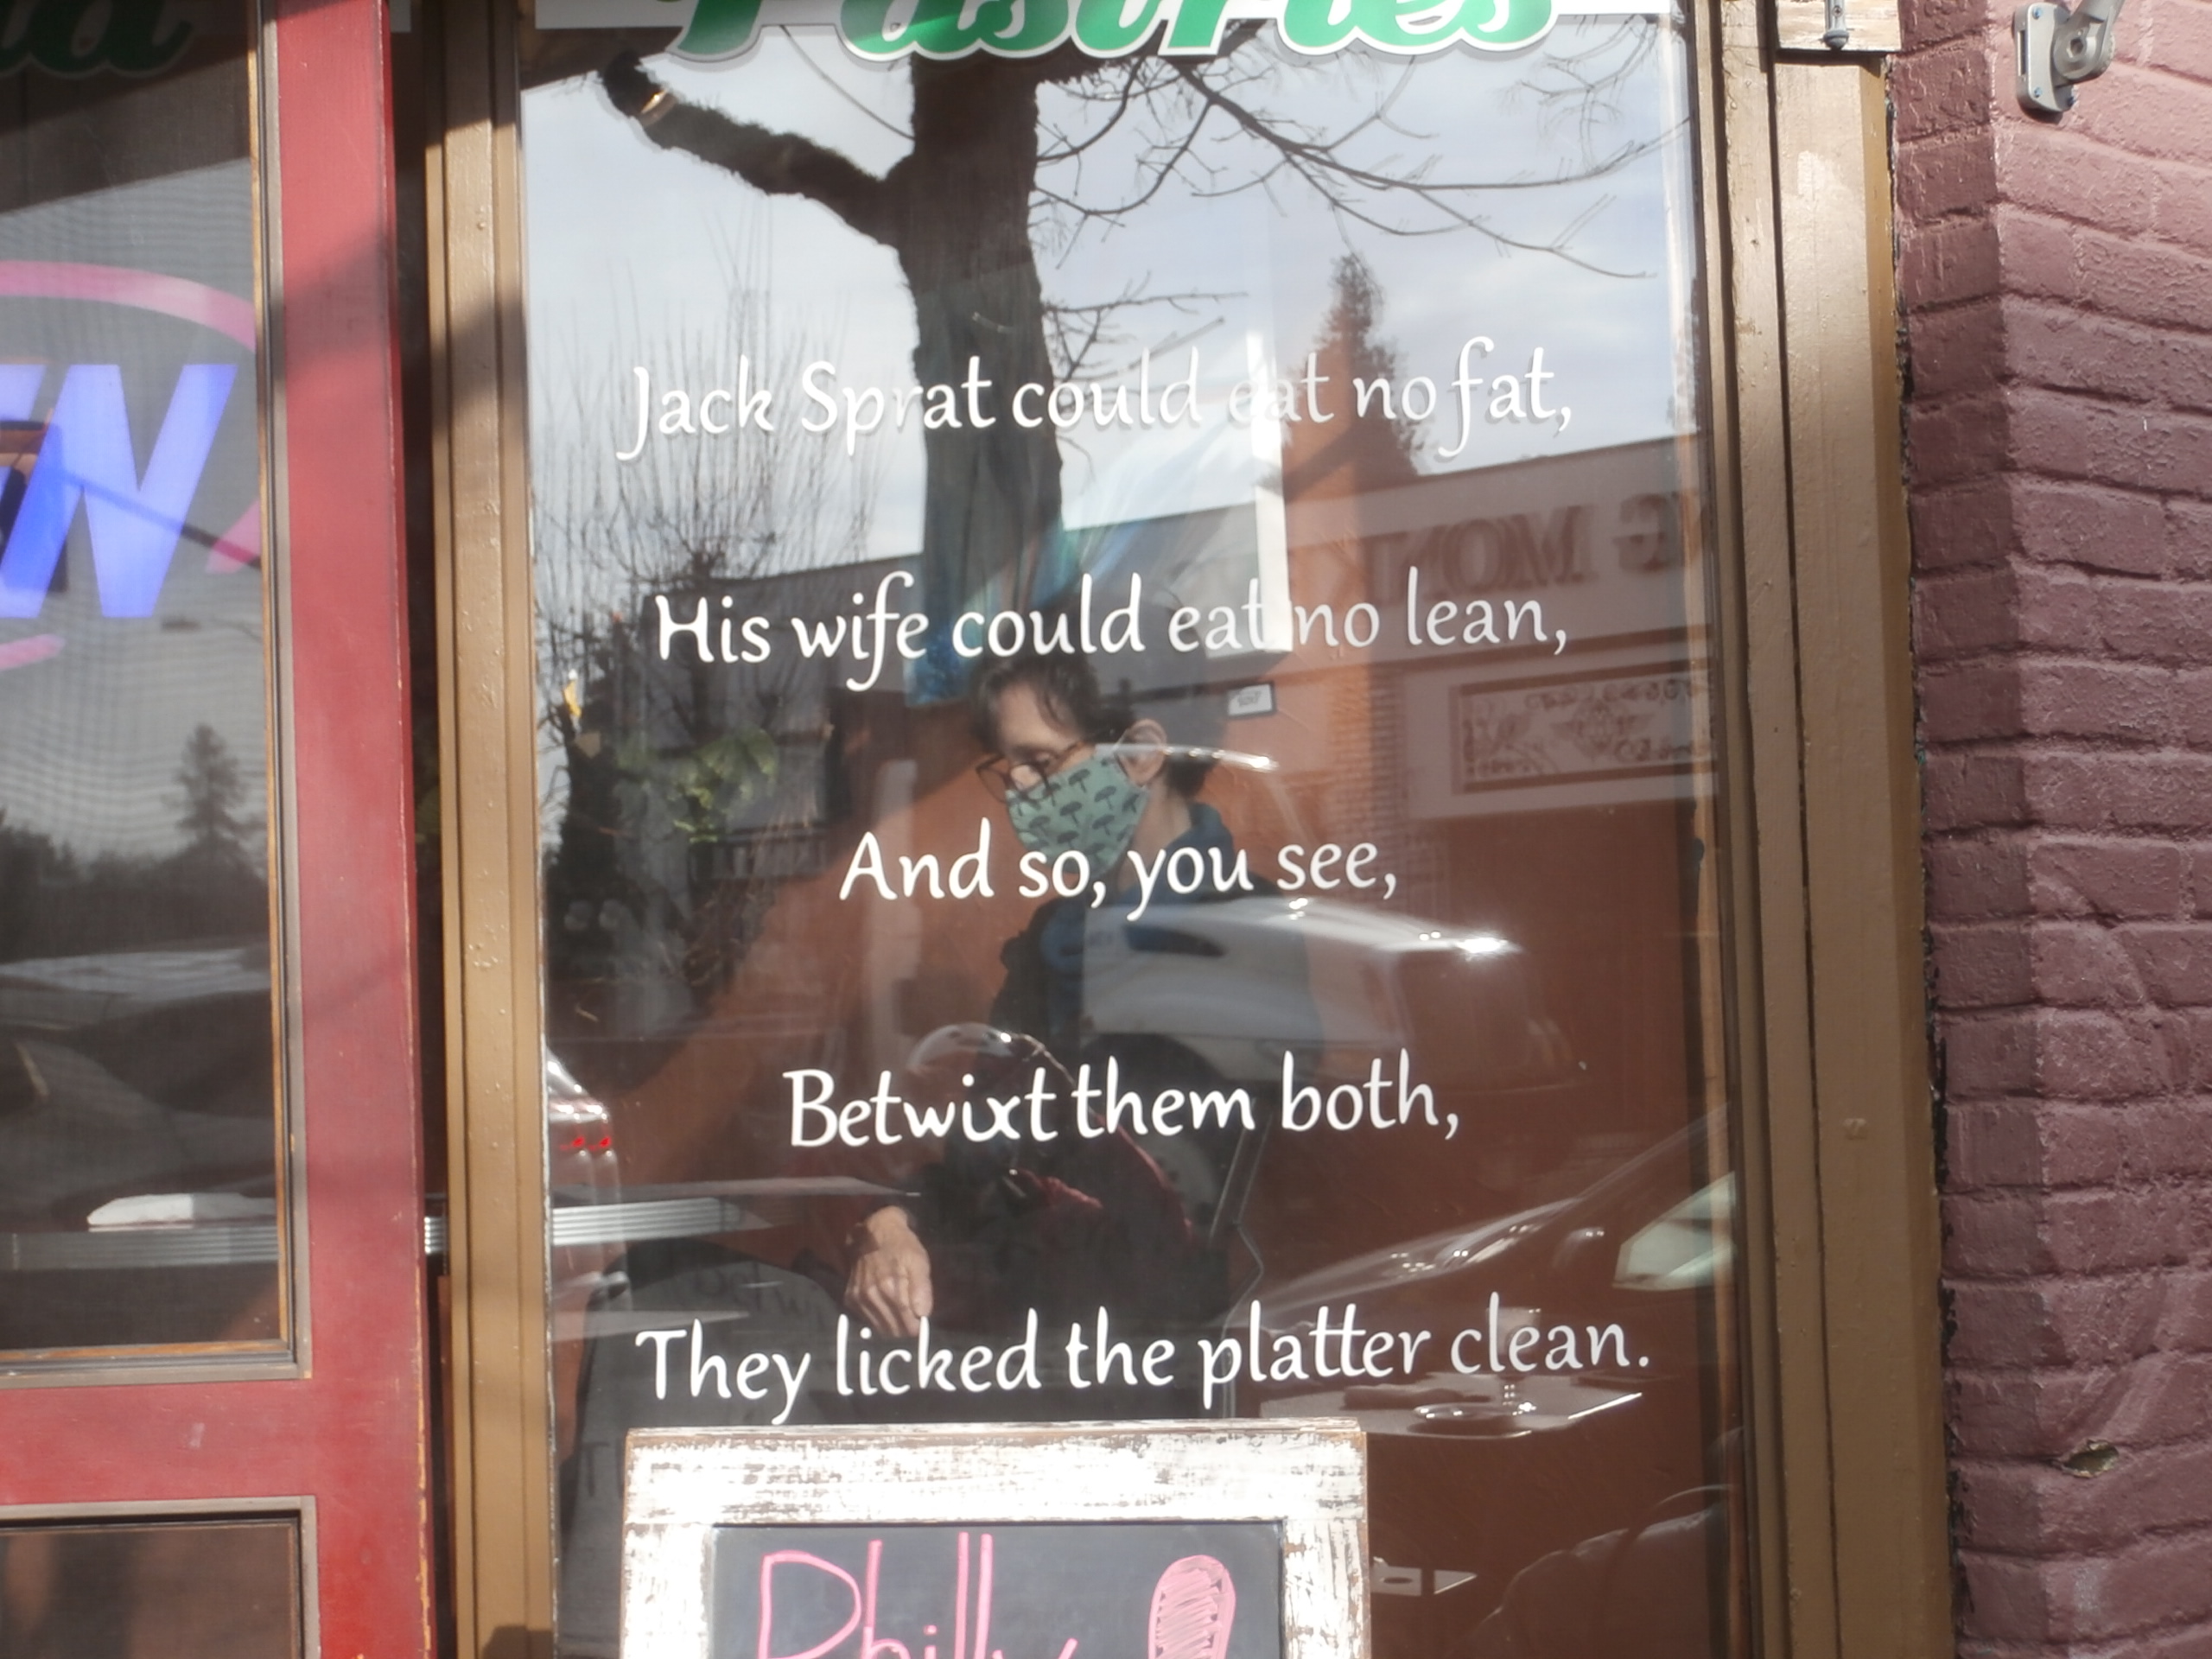 Pastries
Jack Sprat could eat no fat,
His wife could eat no lean,
And so, you see,
Betwixt them both,
They licked the platter clean.
Philly